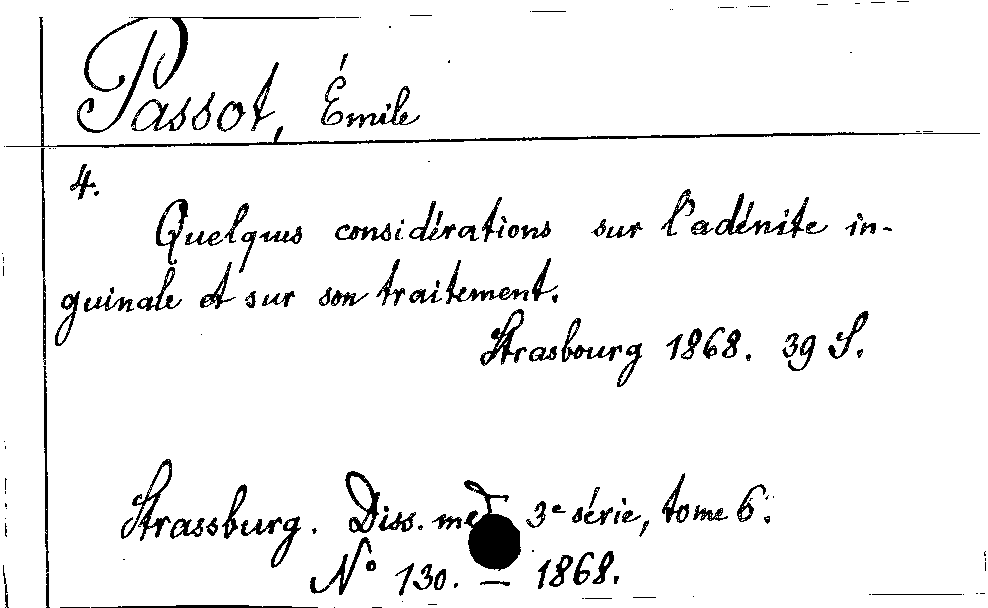 Passot, Émile
4.
Quelques considérations sur l'adénite in-
guinale et sur son traitement.
Strasbourg 1868. 39 S.
Strassburg. Diss. med 3e série, tome 6.
No 130. — 1868.